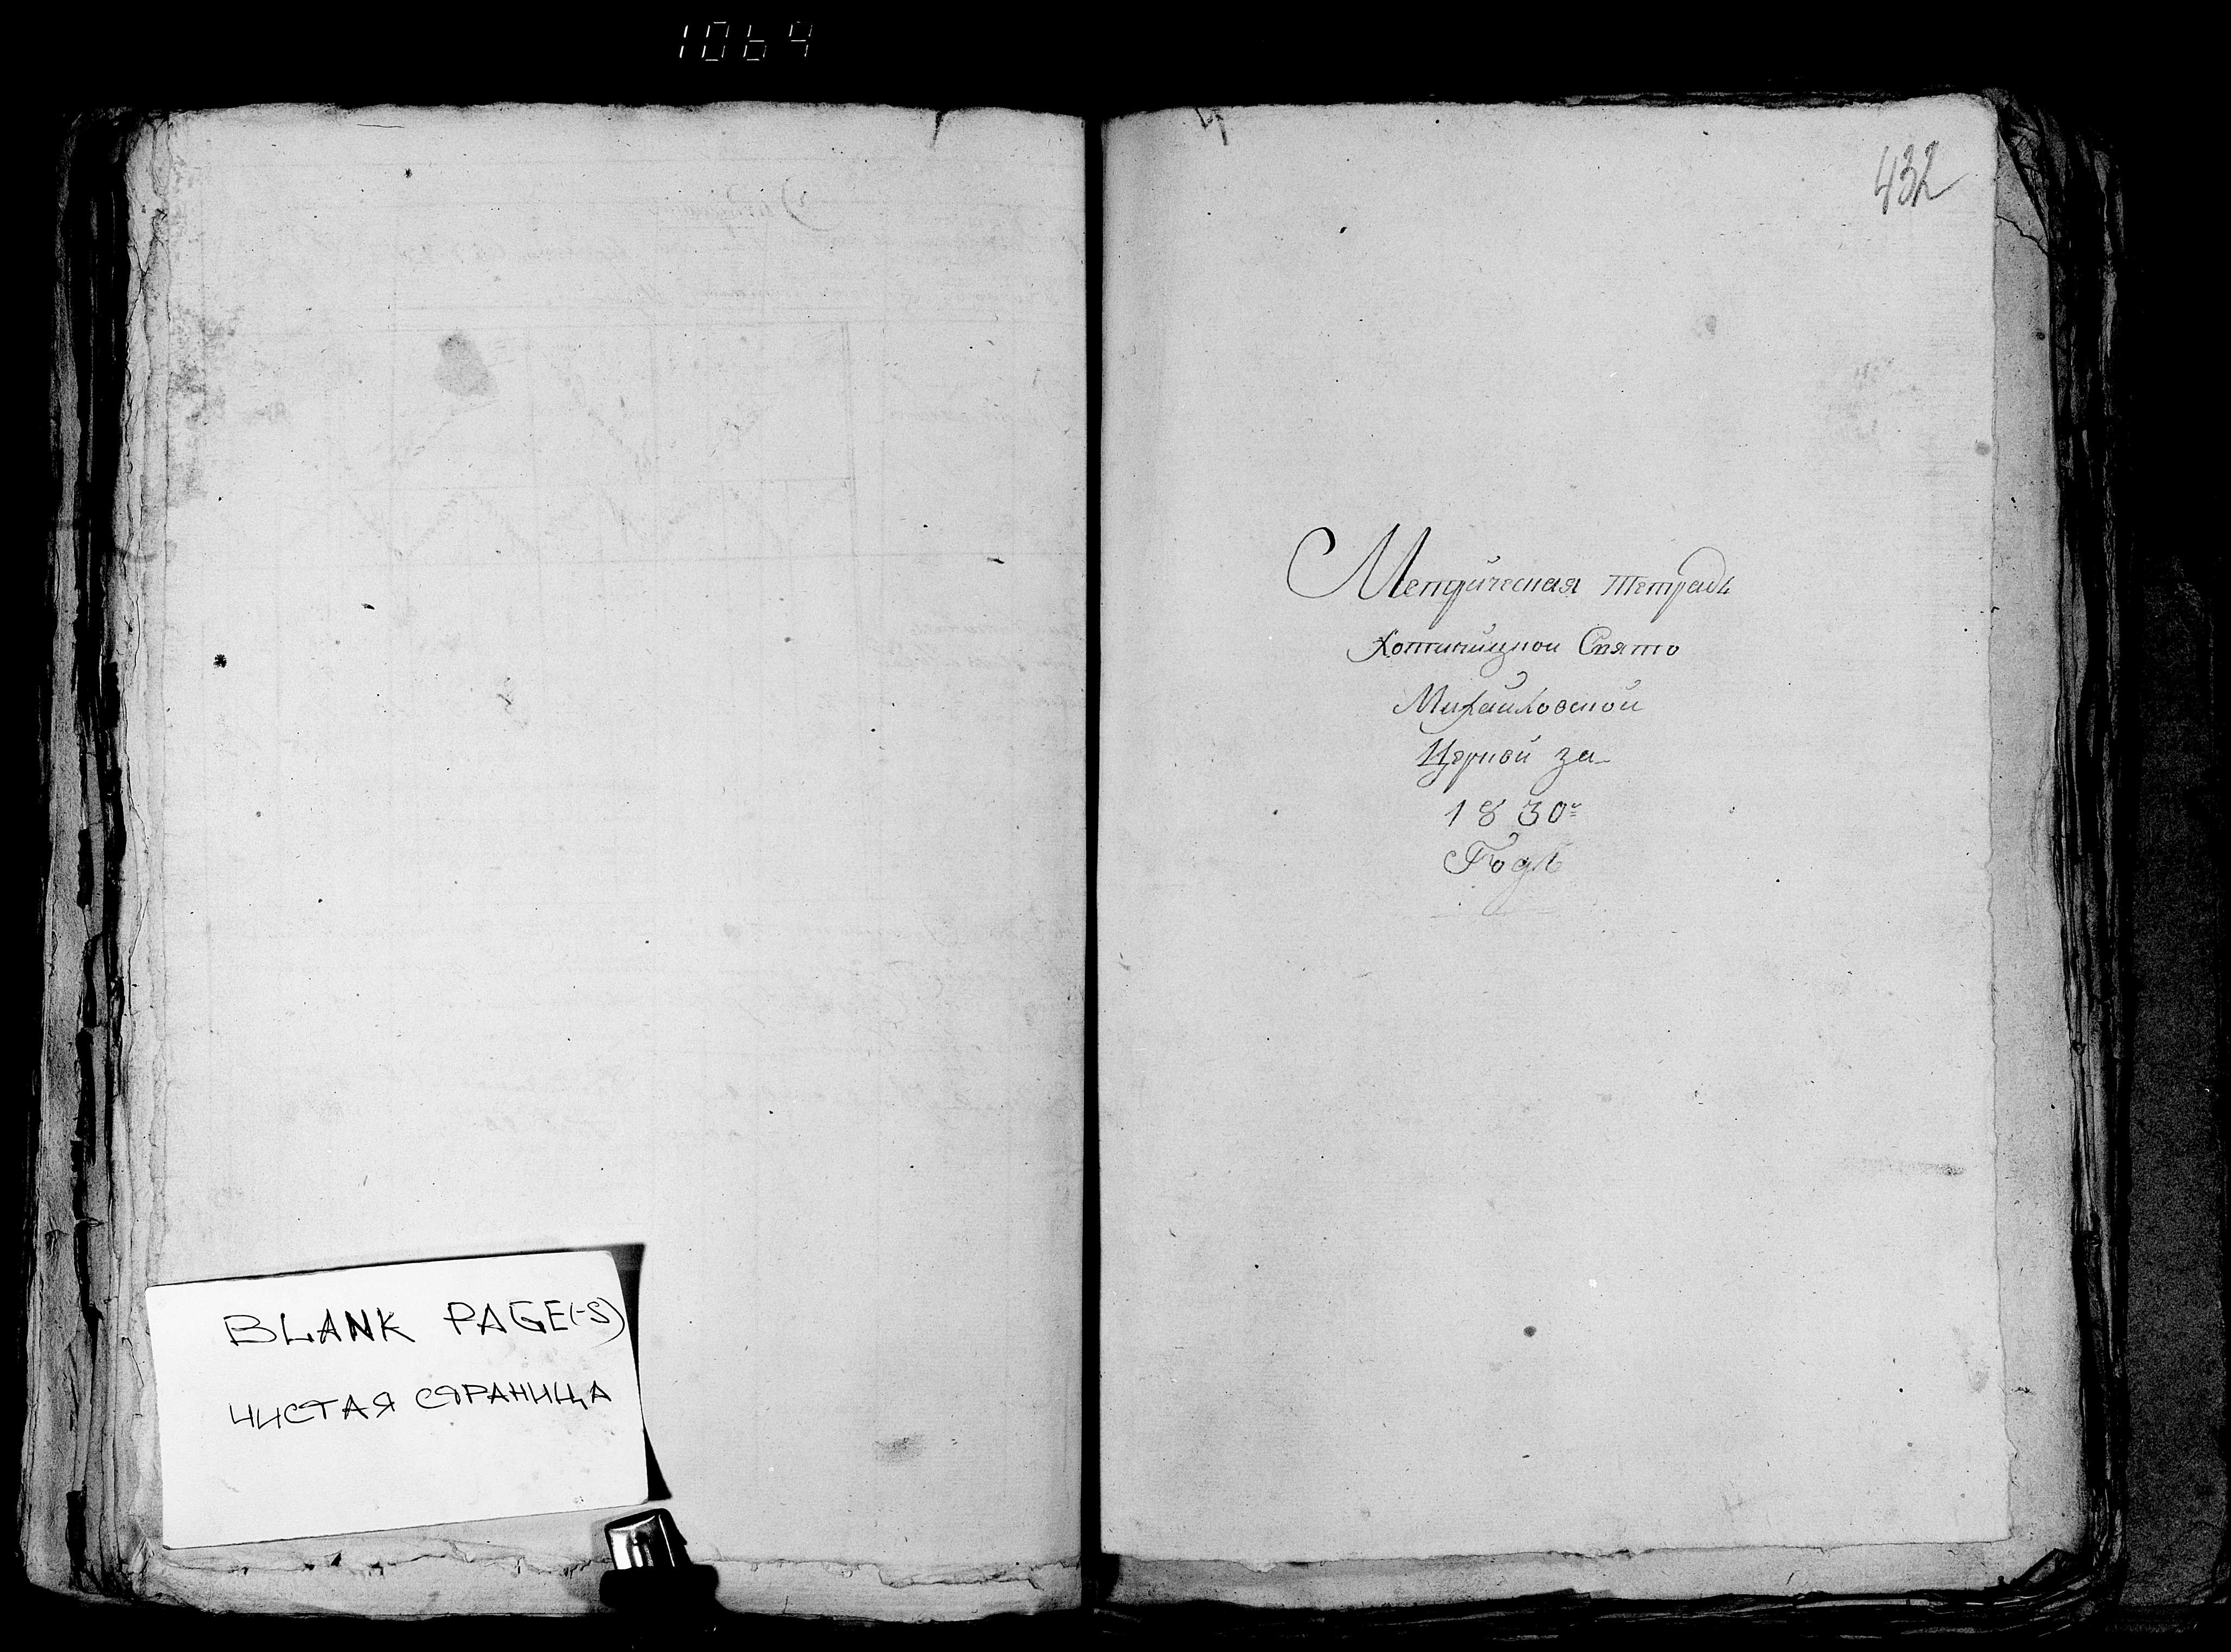 1064
BLANK PAGE(-S)
ЧИСТАЯ СТРАНИЦА
432
Метрическая тетрадь
Хотиницкой Свято
Михайловской
Церкви за
1830й
Годъ